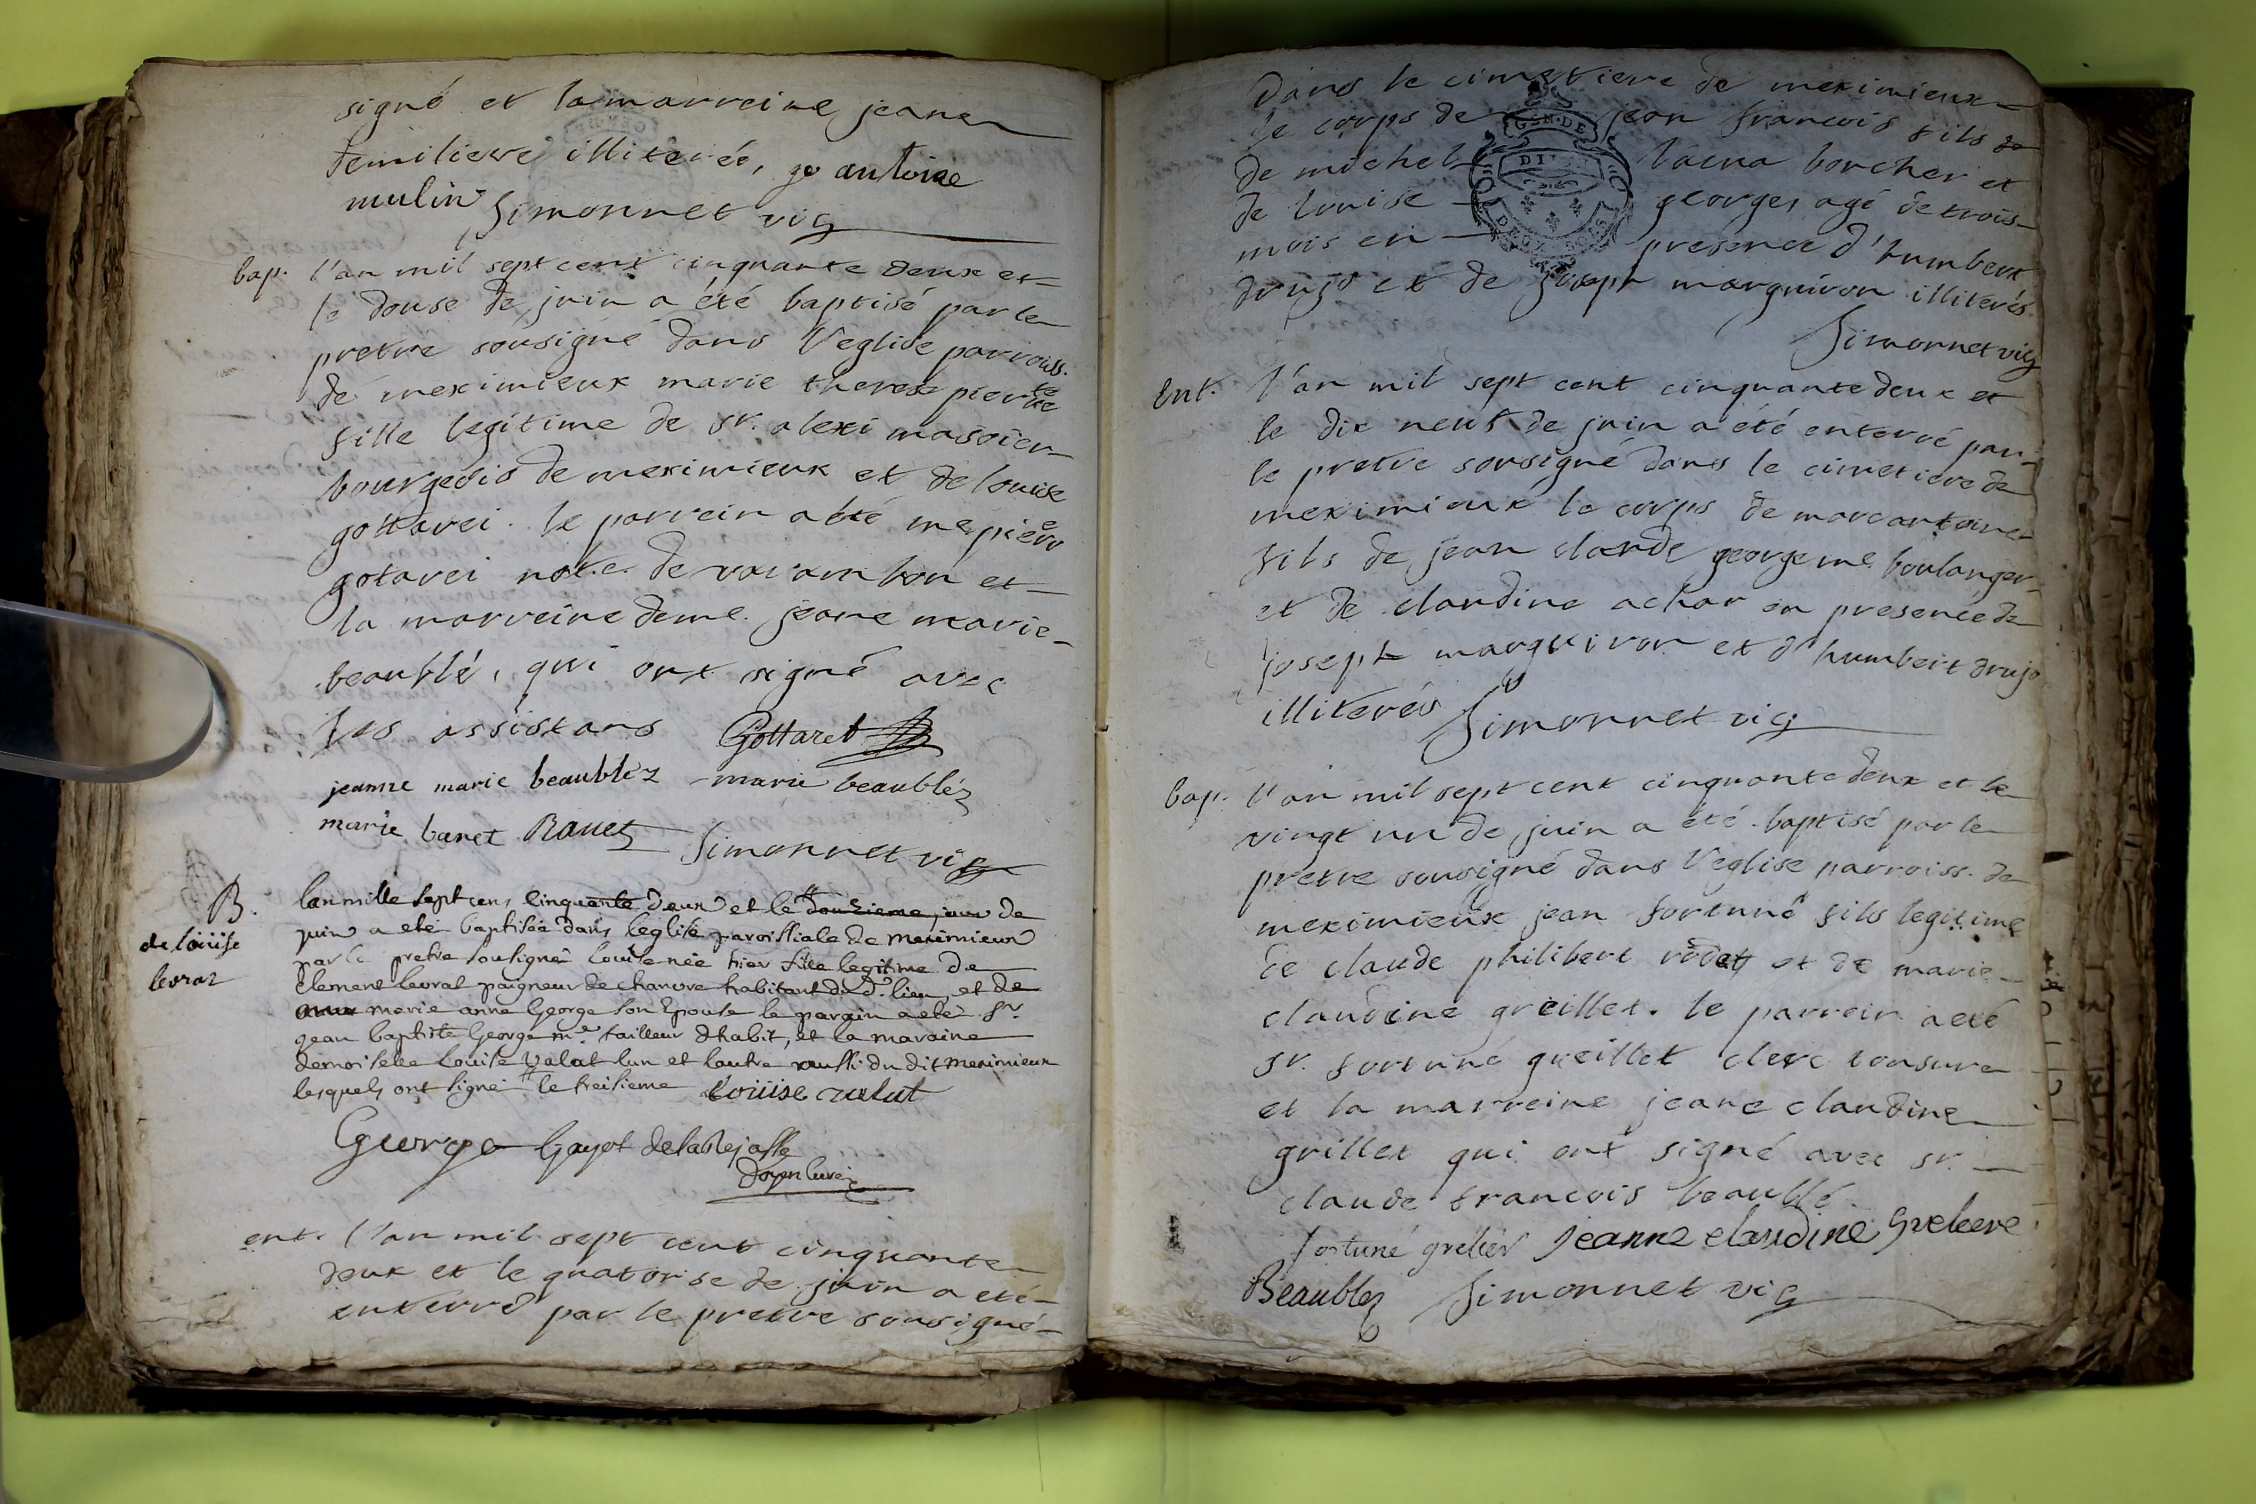 signé et la marreine jeane
illiterée, go antoine
mulin Simonnet vic
bap. l'an mil sept cent cinquante deux et
le douse de juin a été baptisé par le
pretre sousigné dans l'eglise parroiss.
de meximieux marie therese pierrette
fille legitime de sr. alexi masoier
bourgeois de meximieux et de louise
gottarei. le parrein a été me piere
gotarei note. de varambon et
la marreine deme. jeane marie
beaublé, qui ont signé avec
les assistans Gottaret
jeanne marie beaublez marie beaubléz
marie banet Banet Simonnet vic
B. de loüise levrat
lan mille sept cens cinquante deux et le douzieme jour de
juin a eté baptisée dans leglise paroissiale de meximieux
par le pretre sousigné louise née hier fille legitime de
clement levrat paigneur de chanvre habitant du d. lieu et de
marie anne George son Epouse le parain a eté sr.
jean baptiste George me. tailleur dhabit, et la maraine
demoiselle Louise Valat lun et lautre aussi du dit meximieux
lesquels ont signé le treisieme loüise valat
George Gayot delablejasse
doyen curé
ent. l'an mil sept cent cinquante
deux et le quatorse de juin a eté
enterré par le pretre sousigné
Dans le cimetiere de meximieux
le corps de jean francois fils
de michel borcher et
de louise george, agé de trois
mois en presence d'humbert
drujo et de joseph marguiron illiterés.
Simonnet vic
Ent. l'an mil sept cent cinquante deux et
le dix neuf de juin a été enterré par
le pretre sousigné dans le cimetiere de
meximieux le corps de marc antoine
fils de jean claude george me. boulanger
et de claudine achar en presence de
joseph marguiron et d'humbert drujo
illiterés Simonnet vic
bap. l'an mil sept cent cinquante deux et le
vingt un de juin a été baptisé par le
pretre sousigné dans l'eglise parroiss. de
meximieux jean fortuné fils legitime
de claude philibert rodet et de marie
claudine greillet. le parrein a eté
sr. fortuné greillet clerc tonsure
et la marreine jeane claudine
grillet qui ont signé avec sr.
claude francois beaublé
fortuné grelier Jeanne claudine
Beaublez Simonnet vic